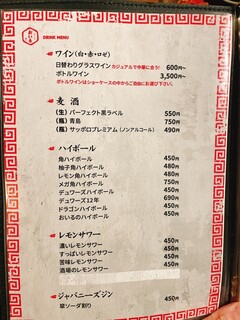 DRINK MENU
ワイン(白・赤・ロゼ)
日替わりグラスワイン カジュアルで中華に合う! 600円~
ボトルワイン 3,500円~
ボトルワインはショーケースの中からご自由にお選び下さい。
麦酒
(生) パーフェクト黒ラベル 550円
(瓶) 青島 750円
(瓶) サッポロプレミアム (ノンアルコール) 490円
ハイボール
角ハイボール 450円
柚子角ハイボール 450円
レモン角ハイボール 480円
メガ角ハイボール 750円
デュワーズハイボール 450円
デュワーズ12年 690円
ドラゴンハイボール 450円
おいるのハイボール 450円
レモンサワー
濃いレモンサワー 450円
すっぱいレモンサワー 450円
苦味レモンサワー 450円
酒場のレモンサワー 450円
ジャパニーズジン
翠ソーダ割り 450円